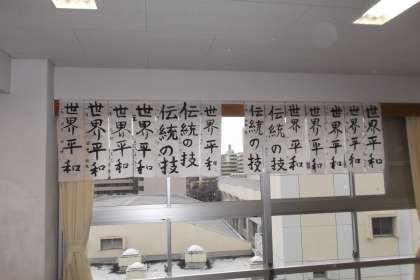 世界平和
世界平和
世界平和
世界平和
世界平和
伝統の技
伝統の技
世界平和
伝統の技
伝統の技
世界平和
世界平和
世界平和
世界平和